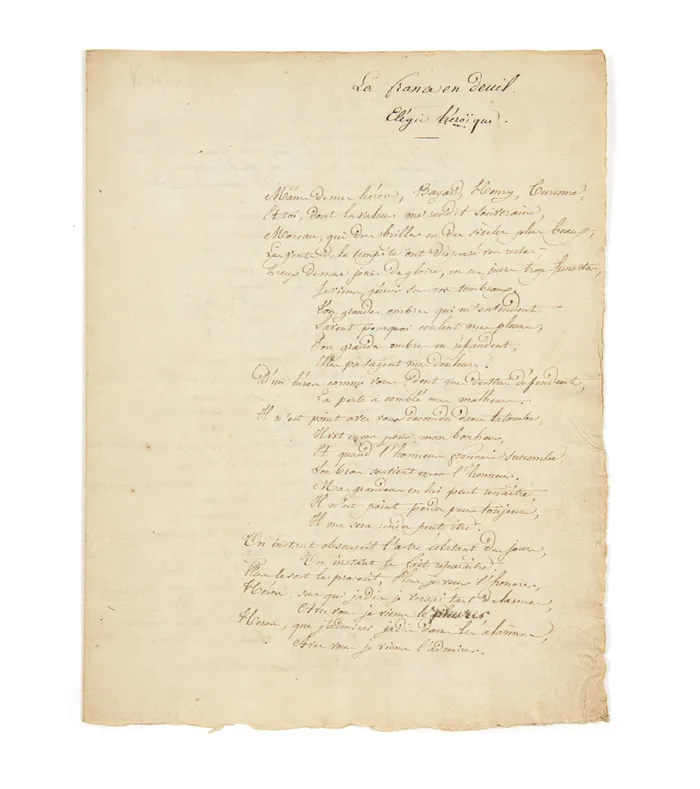 La france en deuil
Elégie héroïque.
Mânes de mes héros, Bayard, Henry, Turenne,
Et toi, dont la valeur me rendit souveraine,
Moreau, qui dus briller en des siècles plus beaux;
Les vents de la tempête ont dispersé vos
de mes jours de gloire, en ces jours trop funestes,
Je viens gémir sur vos tombeaux.
Vos grandes ombres qui m'entendent
Savent pourquoi coulent mes pleurs;
Vos grandes ombres en répandent,
Elles partagent mes douleurs.
D'un héros comme vous dont mes destins dépendent,
La perte a comblé mes malheurs.
Il n'est point avec vous descendu dans la tombe,
Il vit encor pour mon bonheur,
Et quand l'honneur français succombe,
Son bras soutient encor l'honneur.
Ma grandeur en lui peut renaître,
Il n'est point perdu pour toujours,
Il me sera rendu peut être.
Un instant obscurcit l'astre éclatant du jour,
Un instant le fait reparaître.
Plus le sort le proscrit, Plus je veux l'honorer,
Héros, sur qui jadis je versai tant de larmes,
Avec vous je viens le pleurer,
Héros, que j'admirai jadis dans les alarmes,
Avec vous je viens l'admirer.